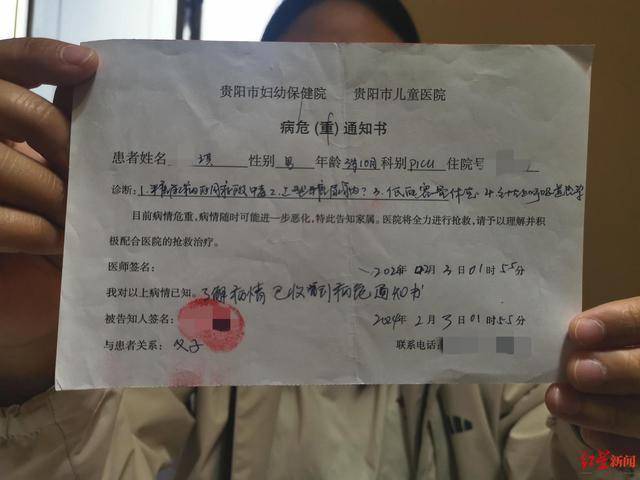 贵阳市妇幼保健院 贵阳市儿童医院
病危(重)通知书
患者姓名 琪 性别 男 年龄 3岁10月 科别 PICU 住院号
诊断:1. 2. 3.低血容量性休克 4.
目前病情危重,病情随时可能进一步恶化,特此告知家属。医院将全力进行抢救,请予以理解并积
极配合医院的抢救治疗。
医师签名: 2024年 02月 3日 01时55分
我对以上病情已知。了解病情 已收到病危通知书
被告知人签名: 2024年 2月 3日 01时55分
与患者关系:父子 联系电话
红星新闻